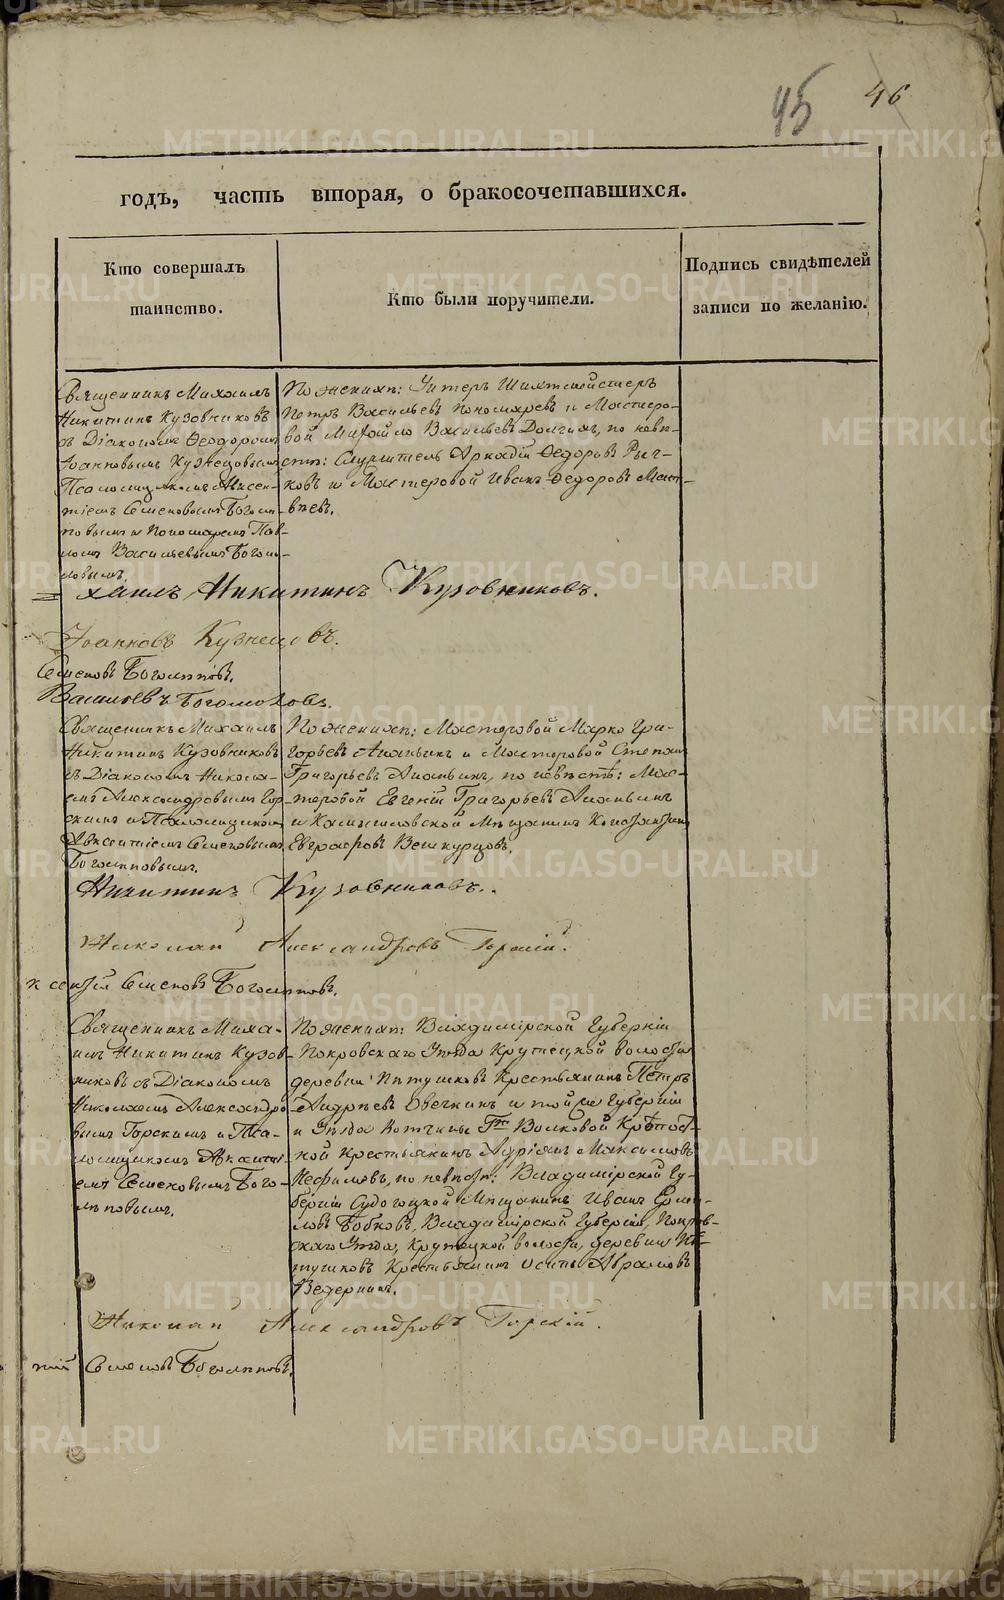 45
46
годъ, часть вторая, о бракосочетавшихся.
Кто совершалъ
таинство.
Кто были поручители.
Подпись свидѣтелей
записи по желанію.
Священникъ Михаилъ
Никитинъ Кузовниковъ
съ Діакономъ Ѳеодоромъ
Іоанновымъ Кузнецовымъ
Псаломщикомъ Авксен-
тіемъ Семеновымъ Боголѣ-
повымъ и Пономаремъ Пав-
ломъ Васильевымъ Богомо-
ловымъ.
По женихѣ: Унтеръ Шихтмейстеръ
Петръ Васильевъ Пономаревъ и Мастеро-
вой Михайло Васильевъ Долгихъ, по невѣ-
стѣ: Служитель Аркадій Ѳедоровъ Рыч-
ковъ и Мастеровой Иванъ Ѳедоровъ Мат-
вѣевъ.
хаилъ Никитинъ Кузовниковъ.
Іоанновъ Кузнецовъ.
Семеновъ Боголѣповъ.
Васильевъ Богомоловъ.
Священникъ Михаилъ
Никитинъ Кузовниковъ
съ Діакономъ Никола-
емъ Александровымъ Гор-
скимъ и Псаломщикомъ
Авксентіемъ Семеновымъ
Боголѣповымъ.
По женихѣ: Мастеровой Марко Гри-
горьевъ Ананьинъ и Мастеровой Степанъ
Григорьевъ Ананьинъ, по невѣстѣ: Мас-
теровой Евгеній Григорьевъ Ананьинъ
и Камышловской Мѣщанинъ Константинъ
Евграфовъ
Никитинъ Кузовниковъ.
Николай Александровъ Горскій.
ксентій Семеновъ Боголѣповъ.
Священникъ Миха-
илъ Никитинъ Кузов-
никовъ съ Діакономъ
Николаемъ Александро-
вымъ Горскимъ и Пса-
ломщикомъ Авксенті-
емъ Семеновымъ Бого-
лѣповымъ.
По женихѣ: Владимірской Губерніи
Покровскаго Уѣзда Крутецкой волости
деревни Пѣтушковъ Крестьянинъ Петръ
Андреевъ Овечкинъ и той же Губерніи
и Уѣзда Вотчины Гжи Волковой Крѣпост-
ной Крестьянинъ Адріанъ Максимовъ
Нефидовъ, по невѣстѣ: Владимірской Гу-
берніи Судогоцкой Мѣщанинъ Иванъ
Бобковъ, Владимірской Губерніи, Покров-
скаго Уѣзда, Крутецкой волости, деревни Пѣ-
тушковъ Крестьянинъ Осипъ Абрамовъ
Ведернинъ.
Николай Александровъ Горскій.
тій Семеновъ Боголѣповъ.
METRIKI.GASO-URAL.RU